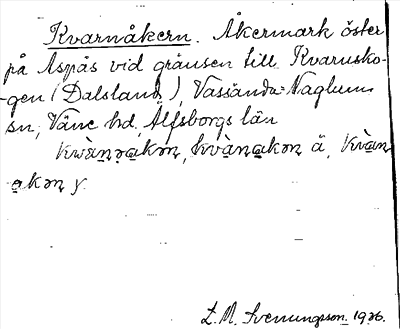 Kvarnåkern. Åkermark öster
på Aspås vid gränsen till Kvarnsko-
gen (Dalsland), Vassända-Naglums
sn, Väne hd, Älfsborgs län
kvànọakọn, kvànakọn ä, kvàn
akọn y.
L. M. Svenungsson. 1926.